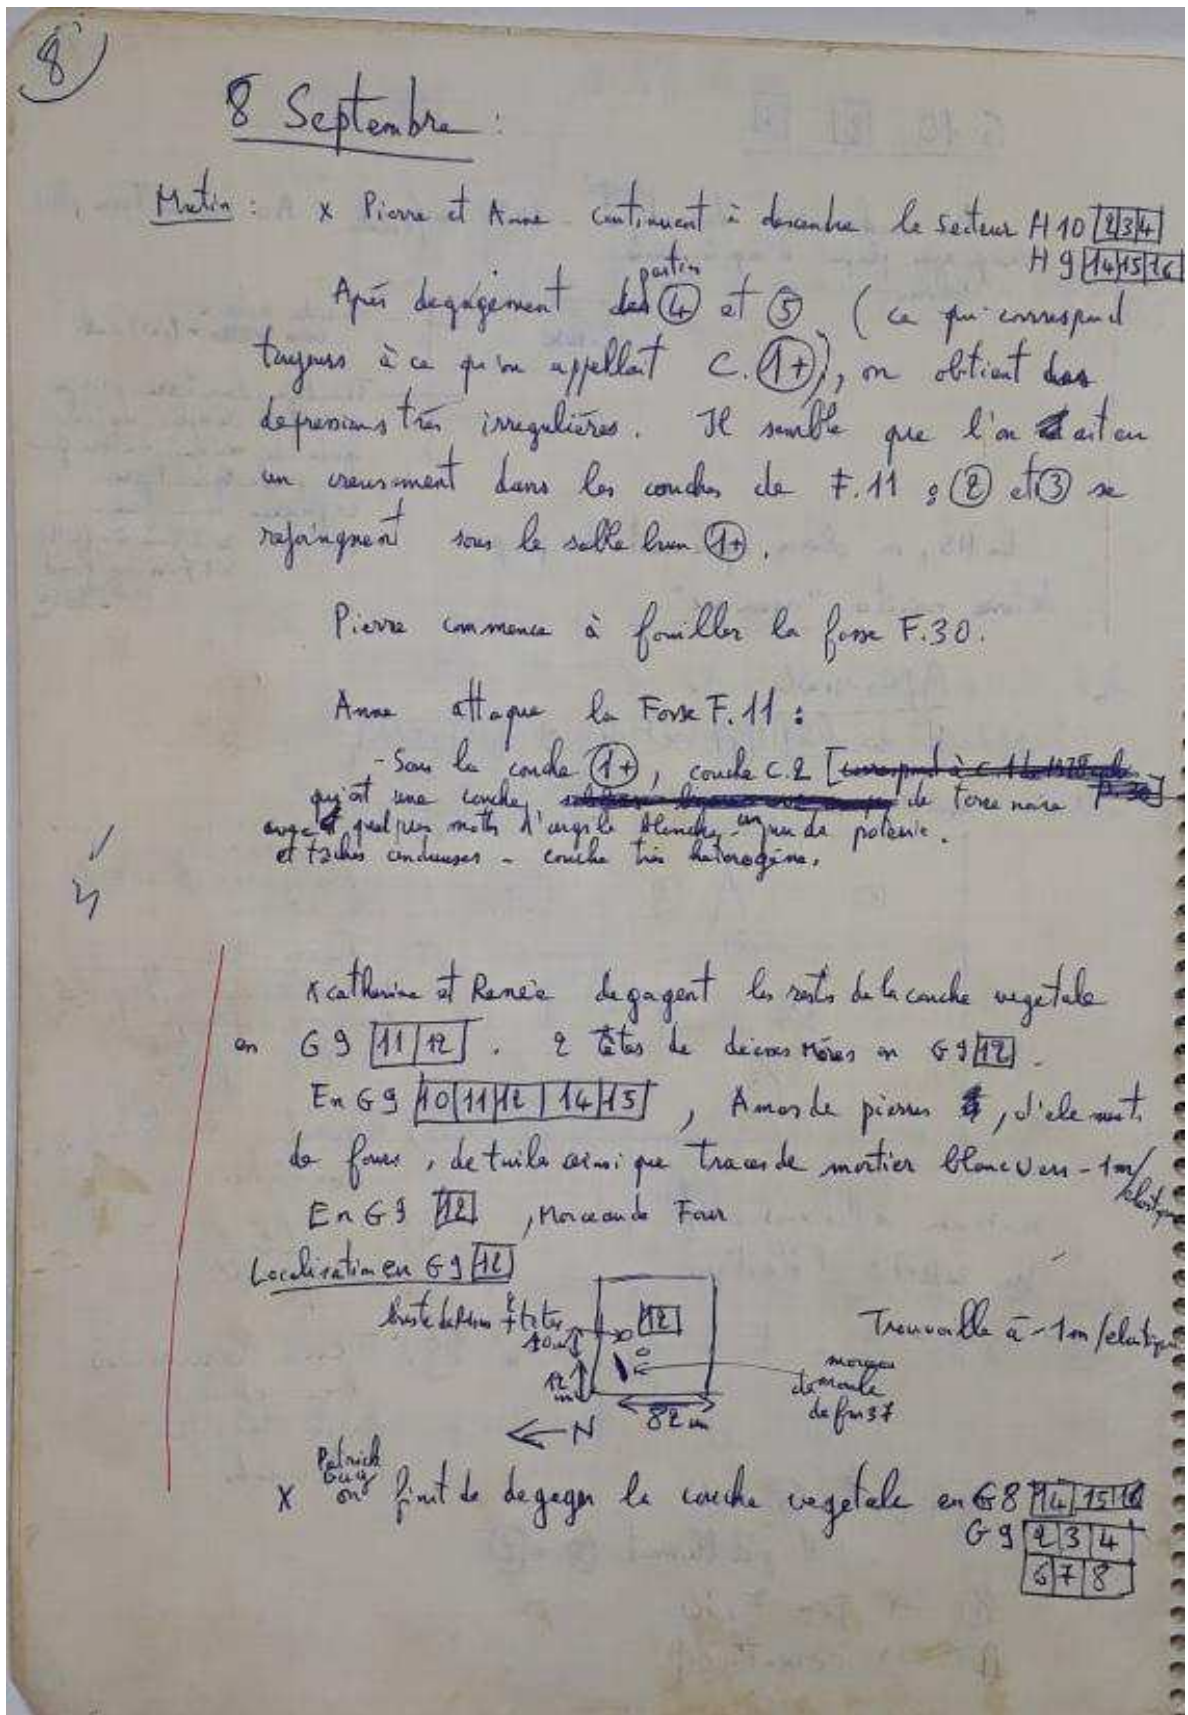 8
8 Septembre :
Matin : x Pierre et Anne continuent à descendre le secteur H10 2 3 4
H9 14 15 16
partie
Après degagement des 4 et 5 ( ce qui correspond
toujours à ce qu'on appellait C. 1+ ), on obtient des
depressions très irregulières. Il semble que l'on ait eu
un creusement dans les couches de F.11 : 2 et 3 se
rejoingnent sous le sable brun 1+.
Pierre commence à fouiller la fosse F.30.
Anne attaque la Fosse F.11 :
- Sous la couche 1+, couche C.2 [correspond à C.1 de 1978
qu'est une couche de terre noire p.30]
avec quelques motts d'argile blanche - un peu de poterie.
et taches cendreuses - couche très heterogène.
x Catherine et Renée degagent les restes de la couche vegetale
en G9 11 12 . 2 têtes de déesses Mères en G9 12 .
En G9 10 11 12 14 15 , Amas de pierres , d'elements
de fours, de tuiles ainsi que traces de mortier blanc vers -1m/
elastique
En G9 12 , Morceau de Four
Localisation en G9 12
12
2 têtes
10 cm
12 cm
82 cm
N
Trouvaille à -1m/elastique
morceau
de moule
de fm 37
Patrick
Guy
x on finit de degager la couche vegetale en G8 14 15 16
G9 2 3 4
6 7 8